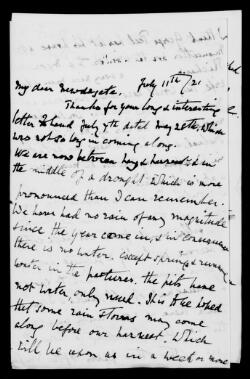 July 11th/21
My dear Newdegate.
Thanks for your long & interesting
letter I had July 9th dated May 28th, which
was not so long in coming along.
We are now between hay & harvest, & in
the middle of a drought which is more
pronounced than I can remember.
We have had no rain of any magnitude
since the year come in, & in consequence
there is no water, except springs & running
water in the pastures, the pits have
not water, only mud. It is to be hoped
that some rain storms may come
along before our harvest, which
will be upon us in a week or more